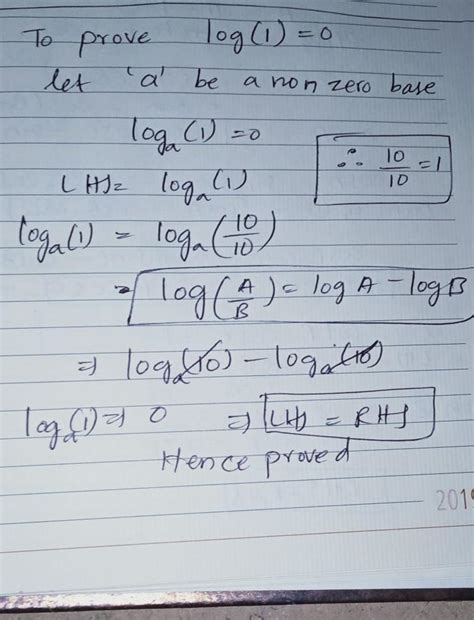 To prove log(1) = 0
let 'a' be a non zero base
logₐ(1) = 0
∴ 10/10 = 1
LHS = logₐ(1)
logₐ(1) = logₐ(10/10)
log(A/B) = log A - log B
⇒ logₐ(10) - logₐ(10)
logₐ(1) ⇒ 0 ⇒ LHS = RHS
Hence proved
2019